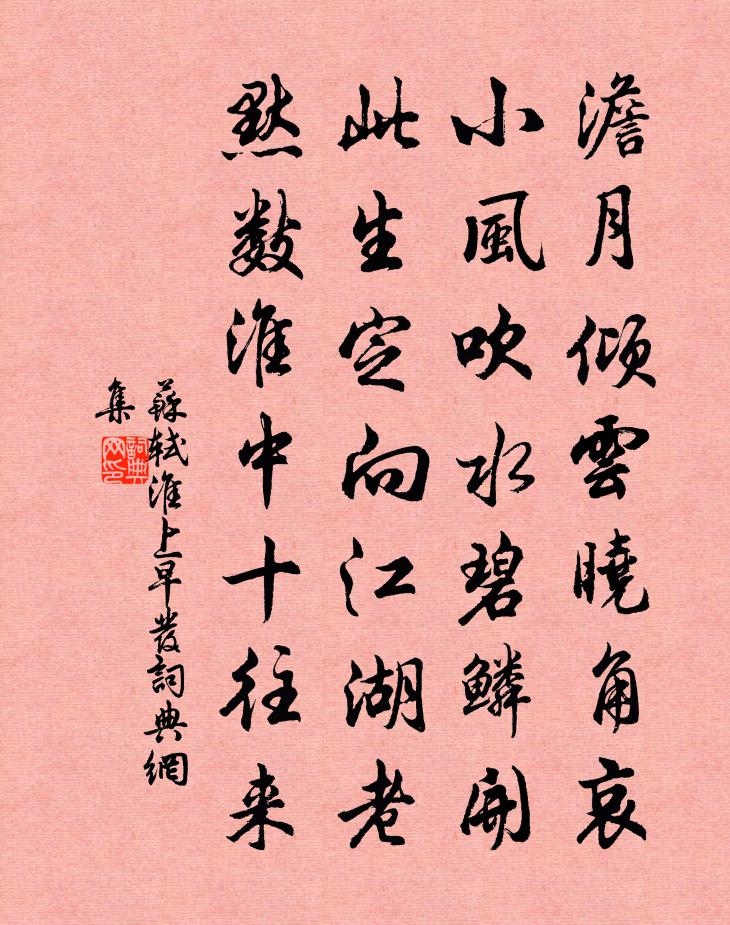 澹月傾雲曉角哀
小風吹水碧鱗開
此生定向江湖老
默数淮中十往来
蘇軾淮上早發詞典網
集
詞典
网印